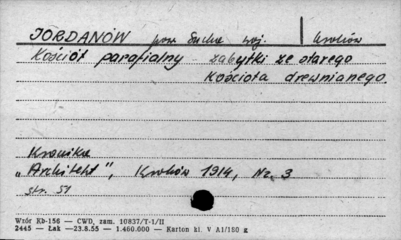 JORDANÓW pow. Sucha woj. Kraków
Kościół parafialny - zabytki ze starego
Kościoła drewnianego
Kronika
"Architekt", Kraków 1914, Nr. 3
str. 51
Wzór Kb-156 — CWD, zam. 10837/T-1/II
2445 — Łak —23.8.55 — 1.400.000 — Karton kl. V A1/180 g